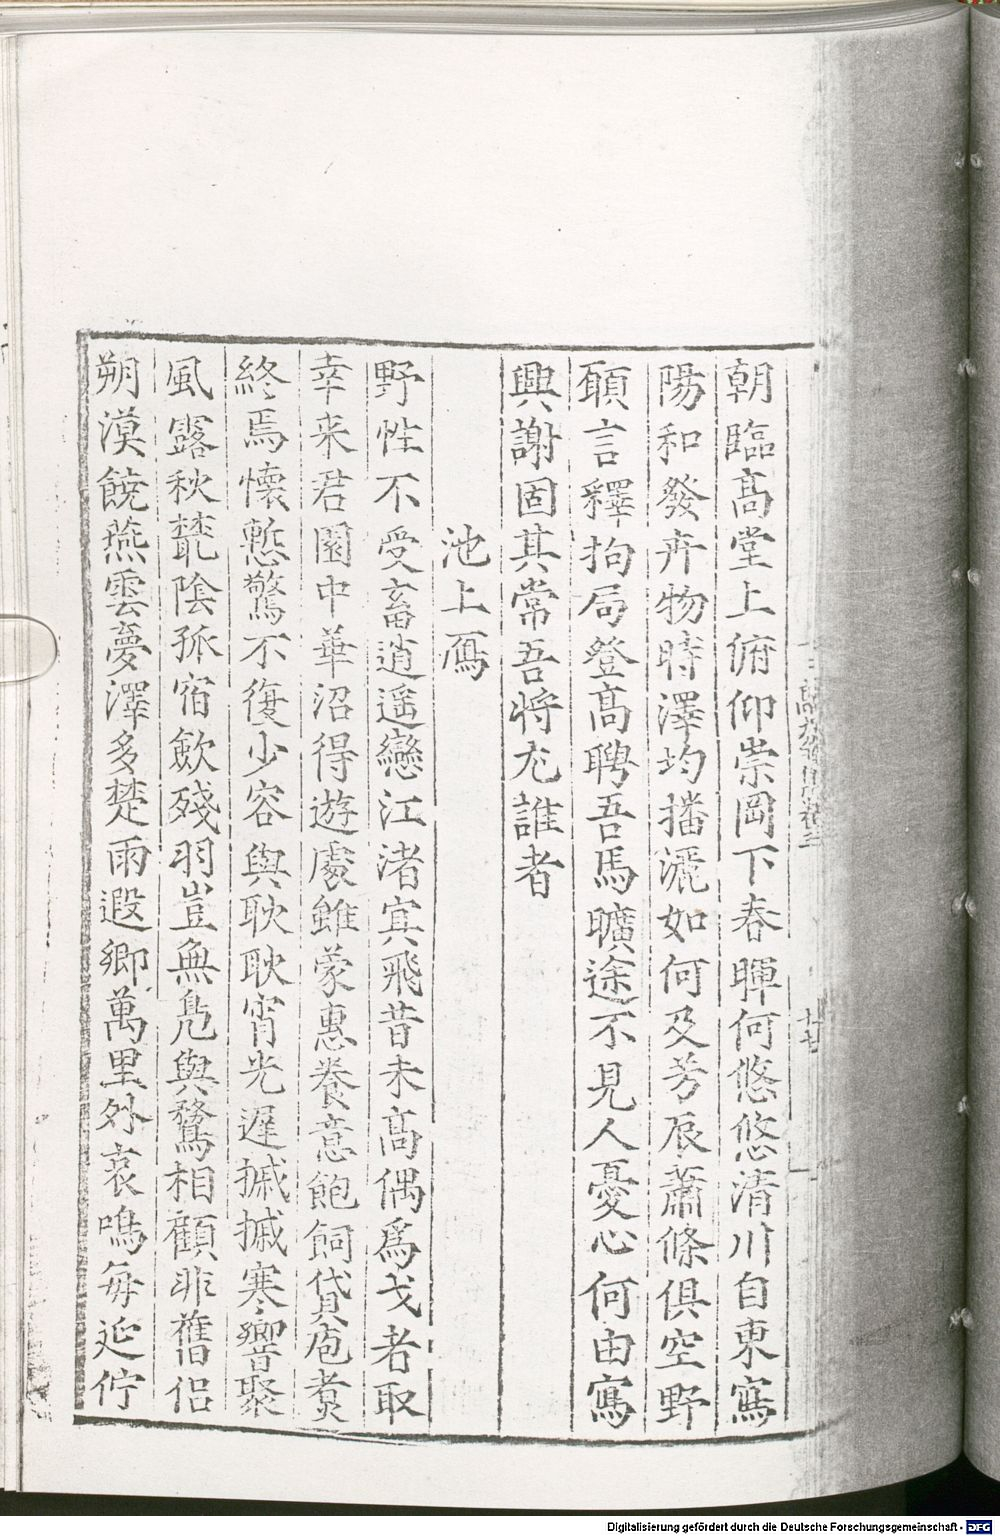 朝臨髙堂上俯仰崇岡下春暉何悠悠清川自東寫
陽和發卉物時澤均播灑如何及芳辰蕭條俱空野
頋言釋拘局登髙聘吾馬曠途不見人憂心何由寫
興謝固其常吾将尤誰者
池上鴈
野性不受畜逍遥戀江渚冥飛昔未髙偶為戈者取
幸来君園中華沼得遊處雖蒙惠養意飽飼貸庖煮
終焉懐慙驚不復少容與耿耿宵光遲摵摵寒響聚
風露秋叢陰孤宿飲殘羽豈無鳧與鶩相顧非舊侣
朔漠饒燕雲夢澤多楚雨遐鄉萬里外哀鳴每延佇
十七
Digitalisierung gefördert durch die Deutsche Forschungsgemeinschaft - DFG